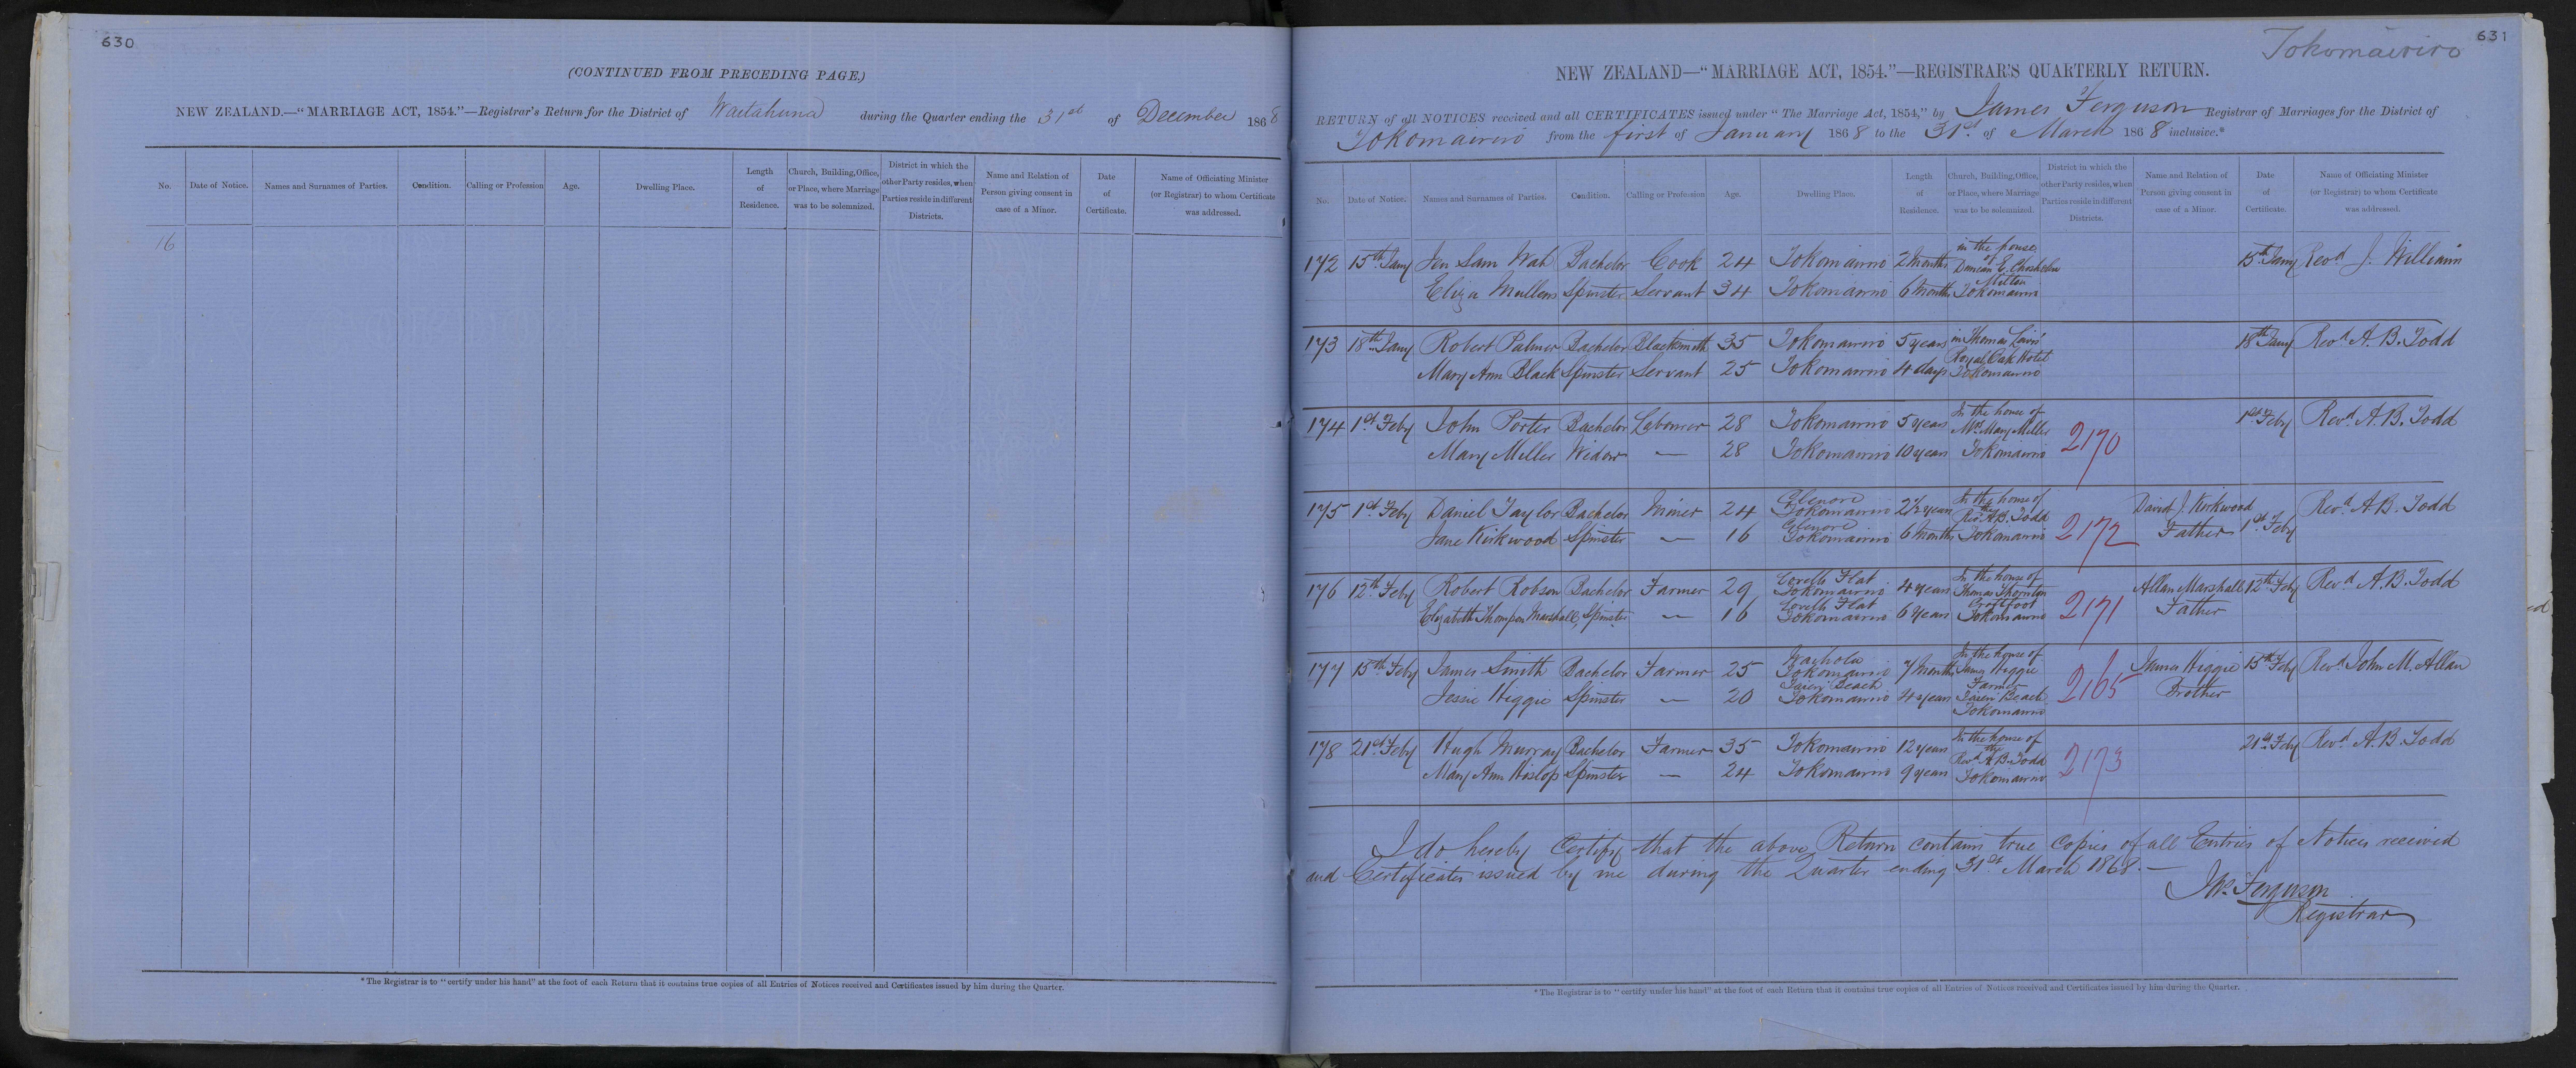 630
(CONTINUED FROM PRECEDING PAGE.)
NEW ZEALAND.—"MARRIAGE ACT, 1854."—Registrar's Return for the District of Waitahuna during the Quarter ending the 31st of December 1868
No.
Date of Notice.
Names and Surnames of Parties.
Condition.
Calling or Profession
Age.
Dwelling Place.
Length of Residence.
Church, Building, Office, or Place, where Marriage was to be solemnized.
District in which the other Party resides, when Parties reside in different Districts.
Name and Relation of Person giving consent in case of a Minor.
Date of Certificate.
Name of Officiating Minister (or Registrar) to whom Certificate was addressed.
16
*The Registrar is to "certify under his hand" at the foot of each Return that it contains true copies of all Entries of Notices received and Certificates issued by him during the Quarter.
631
Tokomairiro
NEW ZEALAND—"MARRIAGE ACT, 1854."—REGISTRAR'S QUARTERLY RETURN.
RETURN of all NOTICES received and all CERTIFICATES issued under "The Marriage Act, 1854," by James Ferguson Registrar of Marriages for the District of
Tokomairiro from the first of January 1868 to the 31st of March 1868 inclusive.*
No.
Date of Notice.
Names and Surnames of Parties.
Condition.
Calling or Profession
Age.
Dwelling Place.
Length of Residence.
Church, Building, Office, or Place, where Marriage was to be solemnized.
District in which the other Party resides, when Parties reside in different Districts.
Name and Relation of Person giving consent in case of a Minor.
Date of Certificate.
Name of Officiating Minister (or Registrar) to whom Certificate was addressed.
172 15th Jany Sam Wah Bachelor Cook 24 Tokomairiro 2 Months in the house of Duncan E. 15th Jany Revd J. William
Eliza Mullens Spinster Servant 34 Tokomairiro 6 Months Milton Tokomairiro
173 18th Jany Robert Palmer Bachelor Blacksmith 35 Tokomairiro 5 years in Thomas 18th Jany Revd A. B. Todd
Mary Ann Black Spinster Servant 25 Tokomairiro 4 days Royal Oak Hotel Tokomairiro
174 1st Feby John Porter Bachelor Labourer 28 Tokomairiro 5 years In the house of Mrs Mary Miller 2170 1st Feby Revd A. B. Todd
Mary Miller Widow — 28 Tokomairiro 10 years Tokomairiro
175 1st Feby Daniel Taylor Bachelor Miner 24 Glenore Tokomairiro 2½ years In the house of the Revd A. B. Todd 2172 David J. Kirkwood 1st Feby Revd A. B. Todd
Jane Kirkwood Spinster — 16 Glenore Tokomairiro 6 Months Tokomairiro Father
176 12th Feby Robert Robson Bachelor Farmer 29 Lovells Flat Tokomairiro 4 years In the house of Thomas Thornton 2171 Allan Marshall 12th Feby Revd A. B. Todd
Elizabeth Thompson Marshall Spinster — 16 Lovells Flat Tokomairiro 6 years Croftfoot Tokomairiro Father
177 15th Feby James Smith Bachelor Farmer 25 Waihola Tokomairiro 7 Months In the house of James Higgie 2165 James Higgie 15th Feby Revd John M. Allan
Jessie Higgie Spinster — 20 Taieri Beach Tokomairiro 4 years Farmer Taieri Beach Tokomairiro Brother
178 21st Feby Hugh Murray Bachelor Farmer 35 Tokomairiro 12 years In the house of the Revd A. B. Todd 2173 21st Feby Revd A. B. Todd
Mary Ann Hislop Spinster — 24 Tokomairiro 9 years Tokomairiro
I do hereby Certify that the above Return contains true copies of all Entries of Notices received
and Certificates issued by me during the Quarter ending 31st March 1868.—
Jas. Ferguson
Registrar
*The Registrar is to "certify under his hand" at the foot of each Return that it contains true copies of all Entries of Notices received and Certificates issued by him during the Quarter.